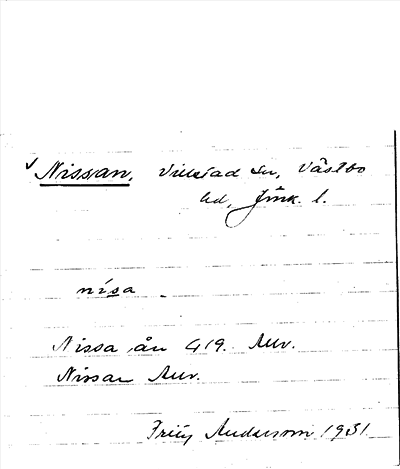 √ Nissan, Villstad sn, Västbo
hd, Jönk. l.
nísa
Nissa ån G19. Auv.
Nissan Auv.
Fritz Anderson 1931